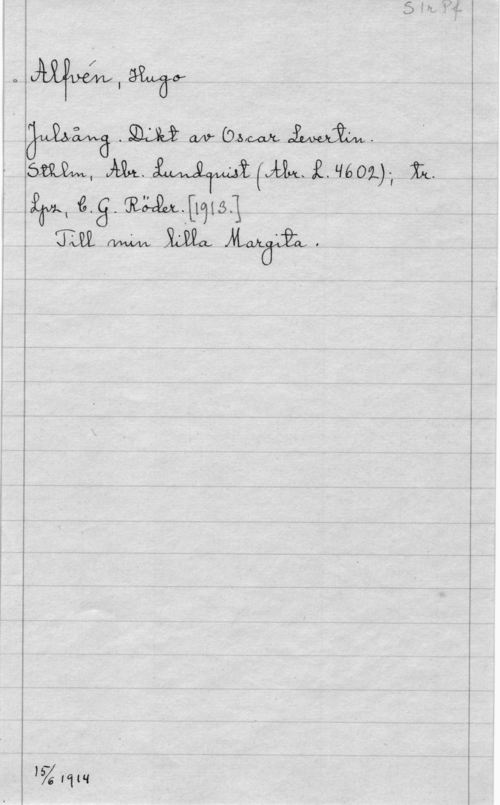 S 1r Pf
Alfvén, Hugo
Julsång. Dikt av Oscar Levertin.
Sthlm, Abr. Lundquist (Abr. L. 4602); tr.
Lpz, C. G. Röder. [1913.]
Till min lilla Margita.
15/6 1914